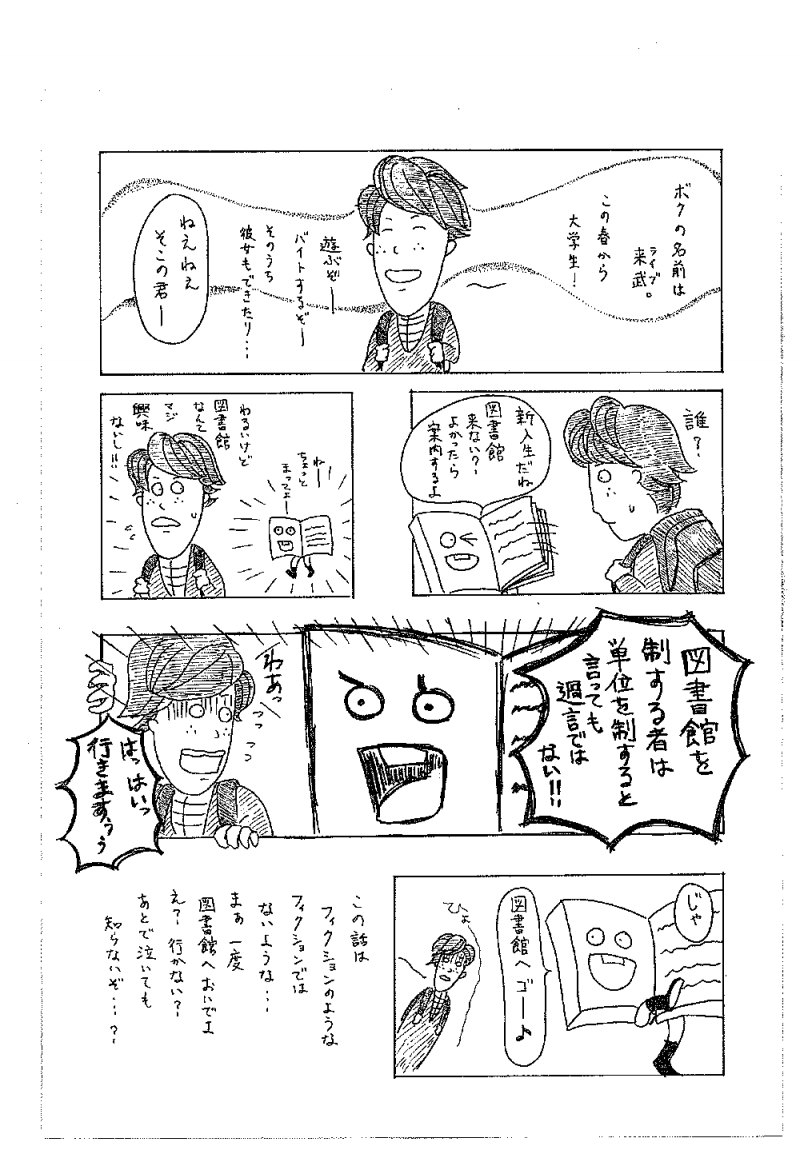 ボクの名前は
来武。
ライブ
この春から
大学生！
遊ぶぞー
バイトするぞー
そのうち
彼女もできたり…
ねえねえ
そこの君ー
誰？
新入生だね
図書館
来ない？
よかったら
案内するよ
わー
ちょっと
まってよー
わるいけど
図書館
なんて
マジ
興味
ないし!!
図書館を
制する者は
単位を制すると
言っても
過言では
ない!!
わあっ
っっっ
はっはいっ
行きますぅぅ
じゃ
図書館へ ゴー♪
ひょ
この話は
フィクションのような
フィクションでは
ないような…
まぁ 一度
図書館へおいでよ
え？ 行かない？
あとで泣いても
知らないぞ…？